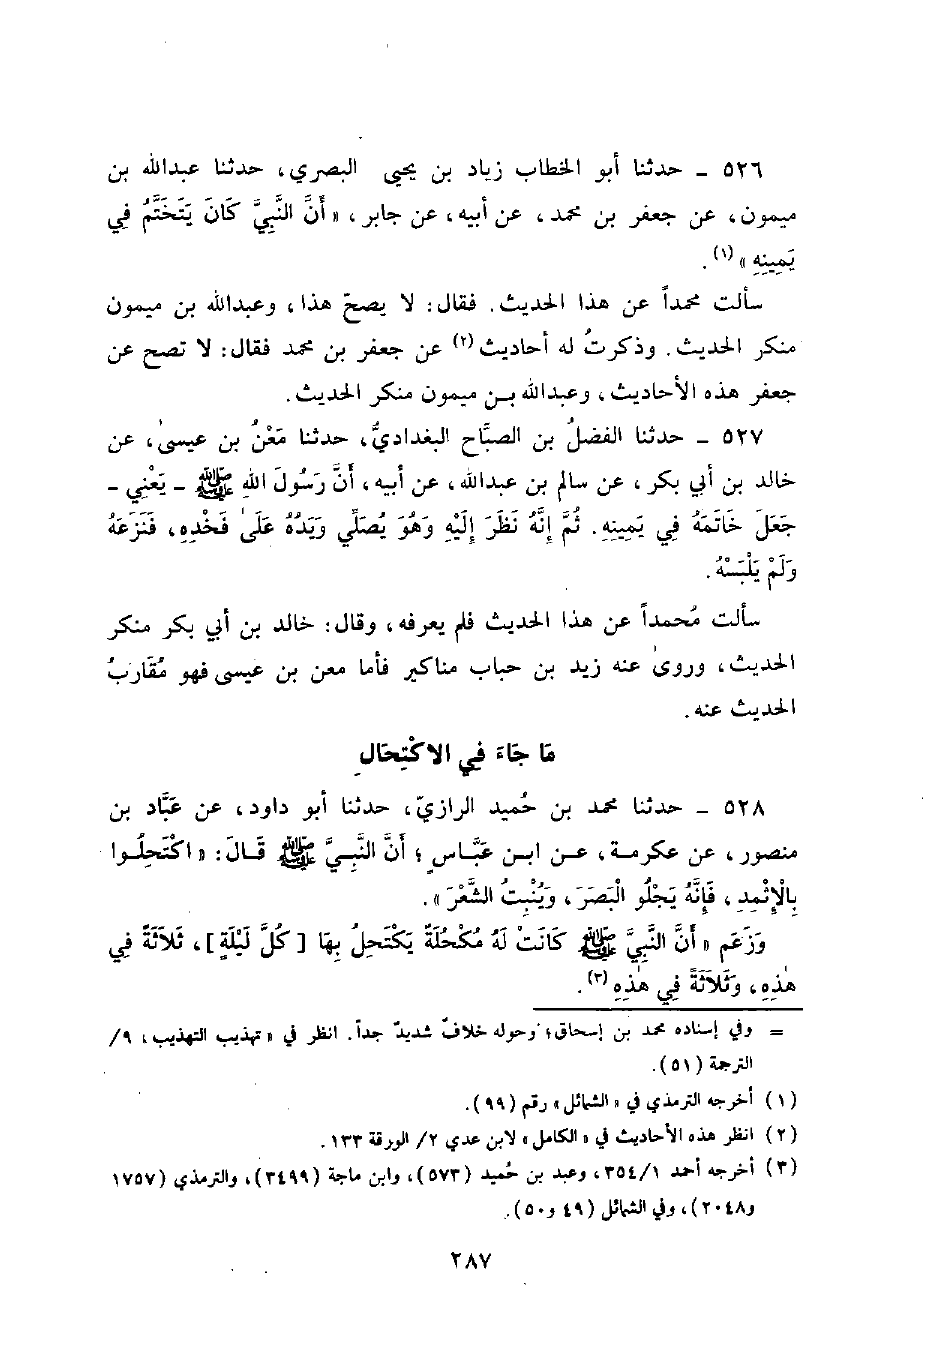 ٥٢٦ - حدثنا أبو الخطاب زياد بن يحيى البصري، حدثنا عبدالله بن
ميمون، عن جعفر بن محمد، عن أبيه، عن جابر، « أَنَّ النَّبِيَّ كَانَ يَتَخَتَّمُ فِي
يَمِينِهِ »(١).
سألت محمداً عن هذا الحديث. فقال: لا يصحّ هذا، وعبدالله بن ميمون
منكر الحديث. وذكرتُ له أحاديث(٢) عن جعفر بن محمد فقال: لا تصح عن
جعفر هذه الأحاديث، وعبدالله بن ميمون منكر الحديث.
٥٢٧ - حدثنا الفضلُ بن الصبَّاح البغداديُّ، حدثنا مَعْنُ بن عيسىٰ، عن
خالد بن أبي بكر، عن سالم بن عبدالله، عن أبيه، أَنَّ رَسُولَ اللهِ ﷺ - يَعْنِي -
جَعَلَ خَاتَمَهُ فِي يَمِينِهِ. ثُمَّ إِنَّهُ نَظَرَ إِلَيْهِ وَهُوَ يُصَلِّي وَيَدُهُ عَلَىٰ فَخْذِهِ، فَنَزَعَهُ
وَلَمْ يَلْبَسْهُ.
سألت مُحمداً عن هذا الحديث فلم يعرفه، وقال: خالد بن أبي بكر منكر
الحديث، وروىٰ عنه زيد بن حباب مناكير فأما معن بن عيسى فهو مُقَارَبُ
الحديث عنه.
مَا جَاءَ فِي الاكْتِحَالِ
٥٢٨ - حدثنا محمد بن حُميد الرازيّ، حدثنا أبو داود، عن عَبَّاد بن
منصور، عن عكرمة، عن ابن عَبَّاسٍ؛ أَنَّ النَّبِيَّ ﷺ قَالَ: « اكْتَحِلُوا
بِالْإِثْمِدِ، فَإِنَّهُ يَجْلُو الْبَصَرَ، وَيُنْبِتُ الشَّعْرَ ».
وَزَعَم « أَنَّ النَّبِيَّ ﷺ كَانَتْ لَهُ مُكْحُلَةٌ يَكْتَحِلُ بِهَا [ كُلَّ لَيْلَةٍ ]، ثَلَاثَةً فِي
هٰذِهِ، وَثَلَاثَةً فِي هٰذِهِ(٣).
= وفي إسناده محمد بن إسحاق؛ وحوله خلافٌ شديدٌ جداً. انظر في « تهذيب التهذيب، ٩/
الترجمة (٥١).
(١) أخرجه الترمذي في « الشمائل » رقم (٩٩).
(٢) انظر هذه الأحاديث في « الكامل » لابن عدي ٢/ الورقة ١٣٣.
(٣) أخرجه أحمد ٣٥٤/١، وعبد بن حُميد (٥٧٣)، وابن ماجة (٣٤٩٩)، والترمذي (١٧٥٧
و٢٠٤٨)، وفي الشمائل (٤٩ و٥٠).
٢٨٧